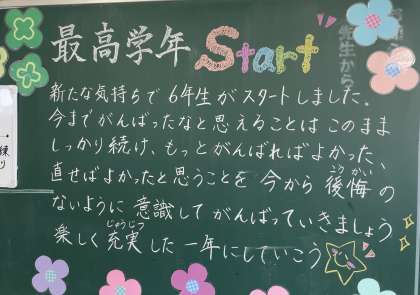 最高学年 Start
新たな気持ちで6年生がスタートしました。
今までがんばったなと思えることはこのまま
しっかり続け、もっとがんばればよかった、
直せばよかったと思うことを今から後悔の
こうかい
ないように意識してがんばっていきましょう
じゅうじつ
楽しく充実した一年にしていこう